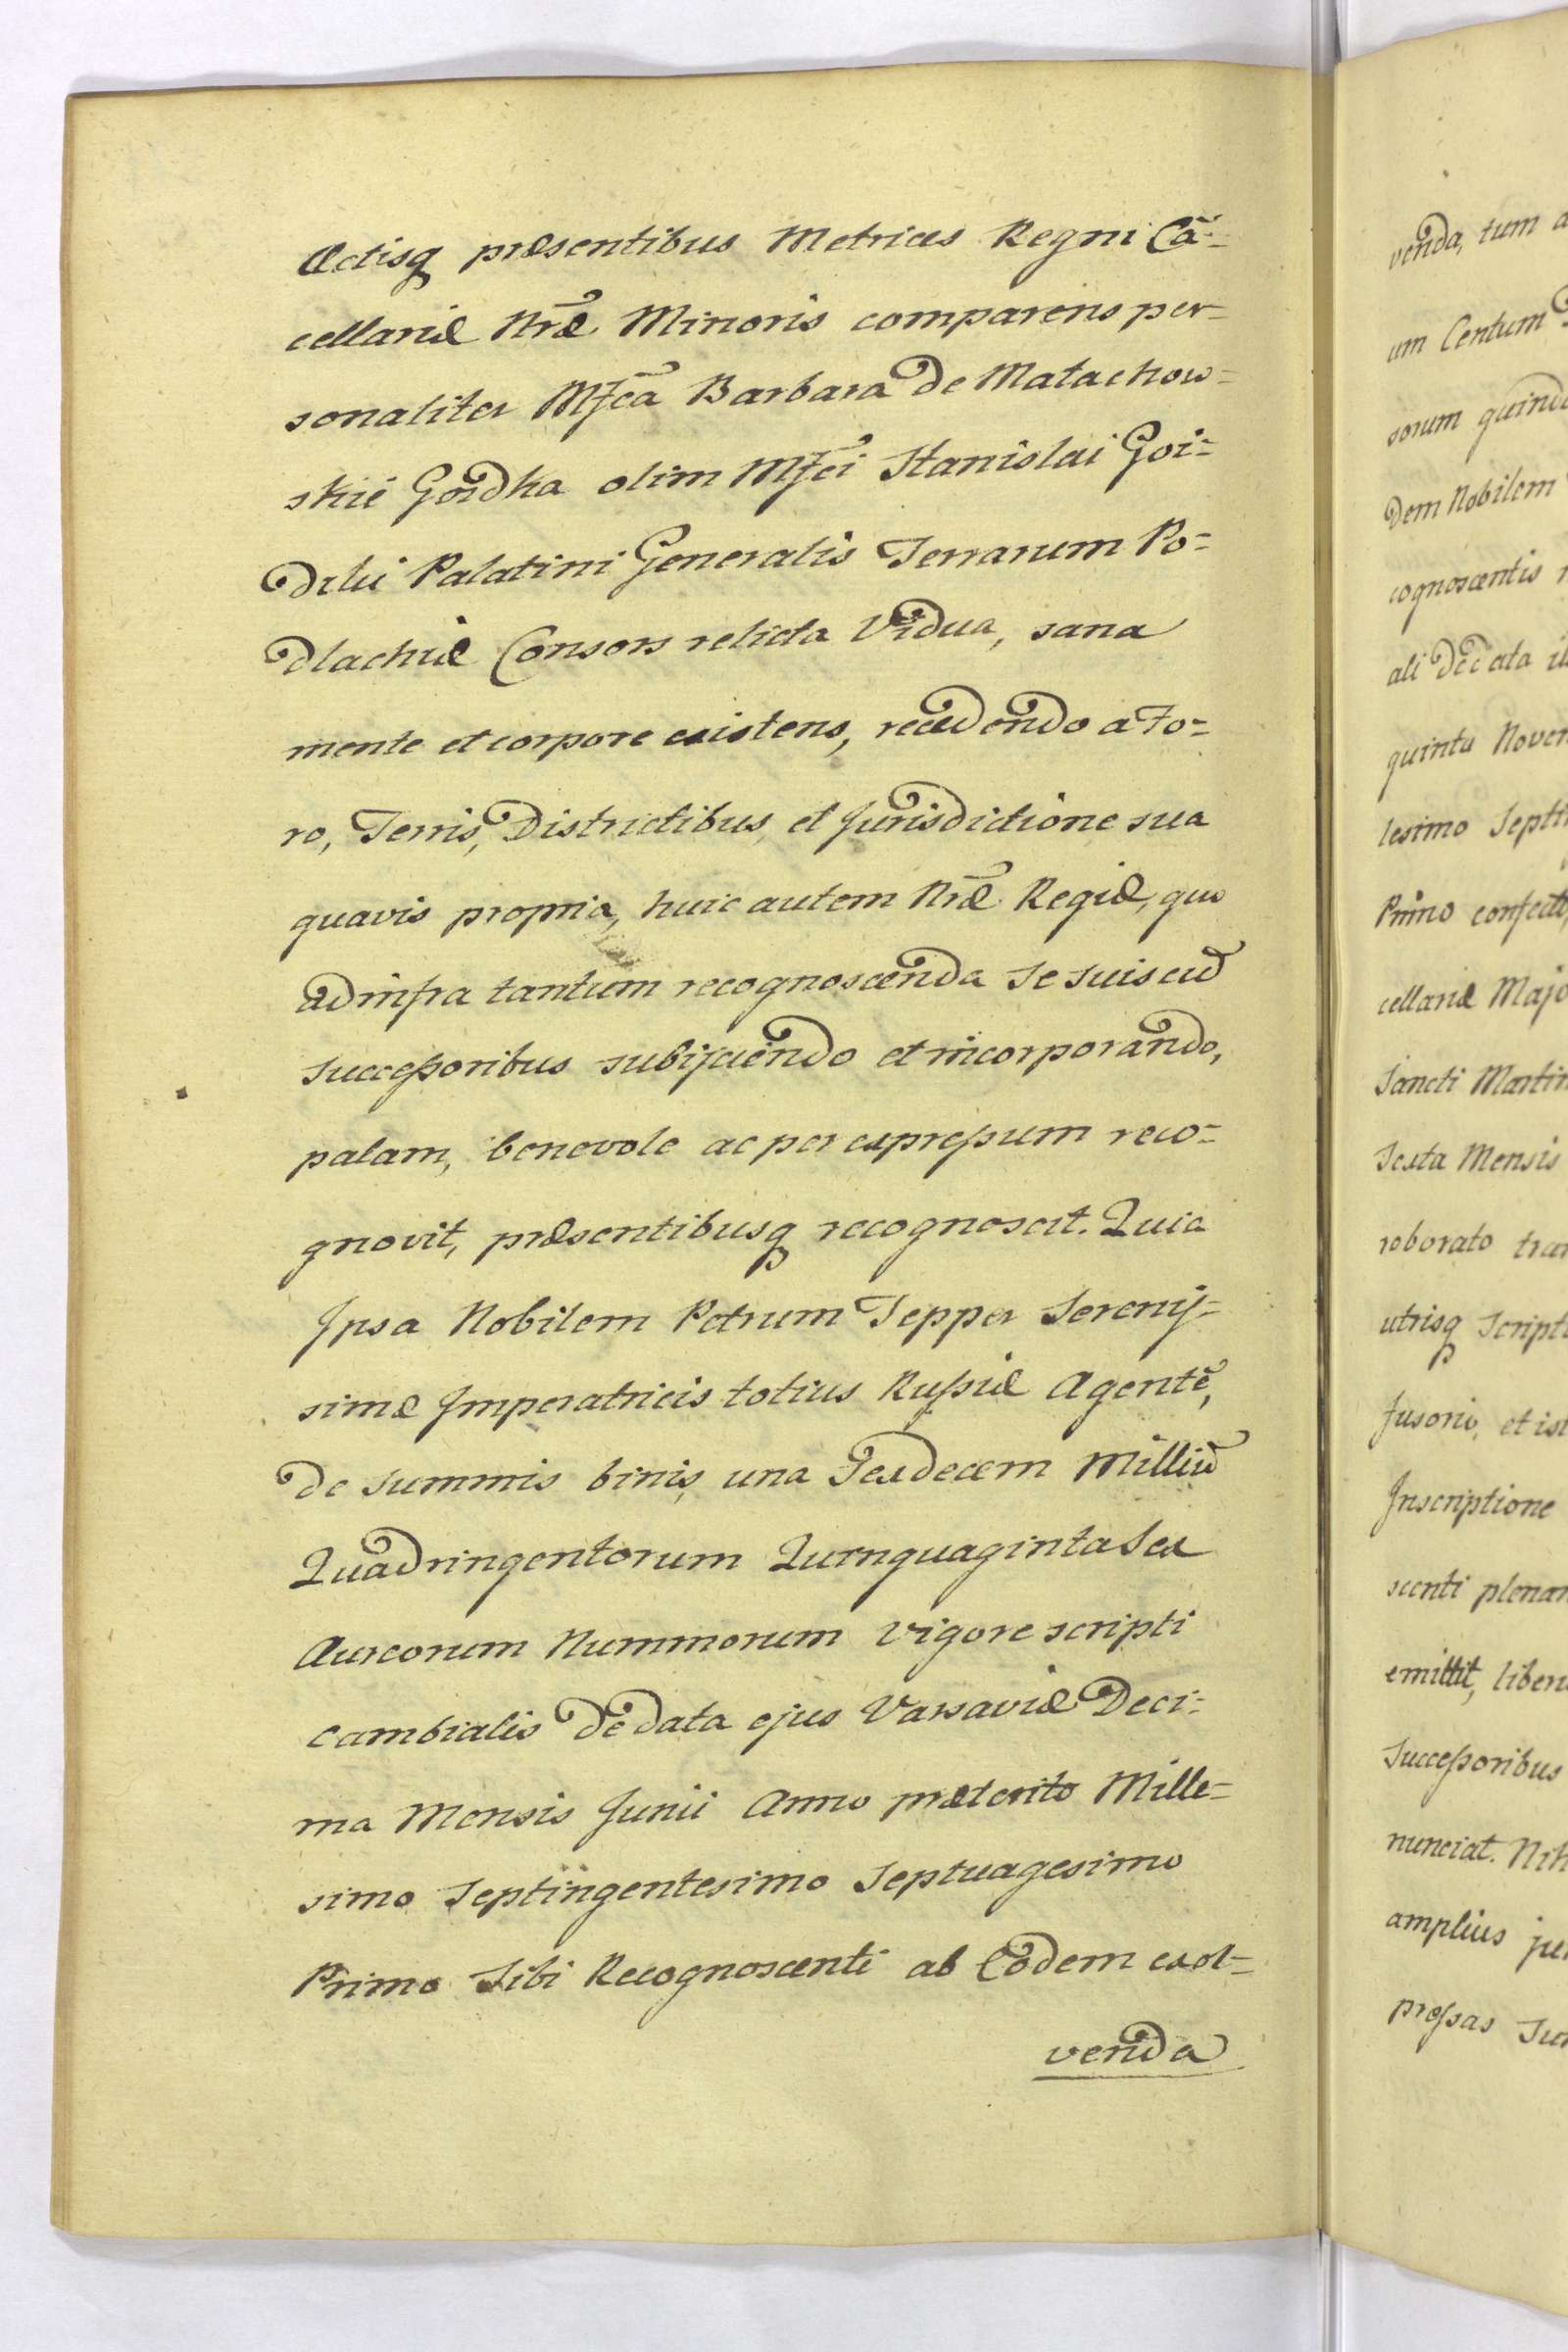 Actisq præsentibus Metrices Regni Cā-
cellariæ Nræ Minoris comparens per-
sonaliter Mfca Barbara de Matachow-
skie Goźdka olim Mfci Stanislai Goź-
dzki Palatini Generalis Terrarum Po-
dlachiæ Consors relicta Vidua, sana
mente et corpore existens, recedendo a Fo-
ro, Terris, Districtibus, et Jurisdictione sua
quavis propria, huic autem Nræ Regiæ, quo
ad infra tantum recognoscenda se suis cū
successoribus subijciendo et incorporando,
palam, benevole ac per expressum reco-
gnovit, præsentibusq recognoscit. Quia
Ipsa Nobilem Petrum Tepper Serenis-
simæ Imperatricis totius Russiæ Agentē,
de summis binis, una Sexdecem Milliū
Quadringentorum Quinquaginta Sex
Aureorum Nummorum vigore scripti
cambialis de data ejus Varsaviæ Deci-
ma Mensis Junii Anno præterito Mille-
simo Septingentesimo Septuagesimo
Primo Sibi Recognoscenti ab Eodem exol-
venda
venda, tum a
um Centum
sorum quind
dem Nobilem
cognoscentis
ali de data
quinta Nove
lesimo Septi
Primo confect
cellariæ Majo
Sancti Martin
Sexta Mensis
roborato tra
utrisq Script
fusorio, et is
Inscriptione
scenti plena
emittit, liber
Successoribus
nunciat. Nih
amplius ju
pressas Su